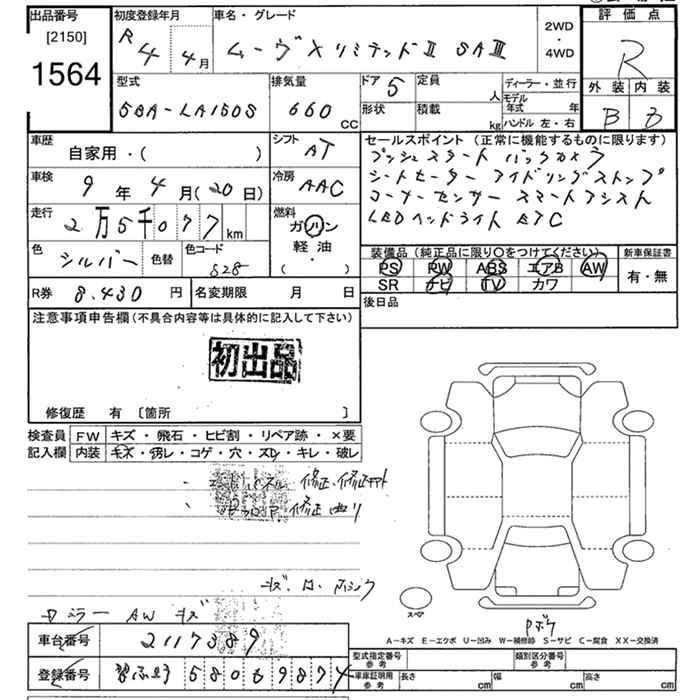 出品番号
[2150]
1564
初度登録年月
R 4 4月
車名・グレード
ムーヴ X リミテッドⅡ SAⅢ
2WD
・
4WD
評価点
R
外装 内装
B B
型式
5BA-LA150S
排気量
660 CC
ドア 5
形状
定員 人
積載 kg
ディーラー・並行
モデル年式 年
ハンドル 左・右
車歴
自家用・( )
シフト AT
車検
9年4月(20日)
冷房 AAC
走行
2万5千077km
燃料
ガソリン
軽油・
( )
色 シルバー 色替 色コード S28
R券 8,430円 名変期限 月 日
セールスポイント(正常に機能するものに限ります)
プッシュスタート バックカメラ
シートヒーター アイドリングストップ
コーナーセンサー スマートアシスト
LEDヘッドライト ETC
装備品(純正品に限り〇をつけてください) 新車保証書
PS PW ABS エアB AW 有・無
SR ナビ TV カワ
後日品
注意事項申告欄(不具合内容等は具体的に記入して下さい)
初出品
修復歴 有 [箇所 ]
検査員 FW キズ・飛石・ヒビ割・リペア跡・×要
記入欄 内装 キズ・汚レ・コゲ・穴・スレ・キレ・破レ
修正・修正
修正 曲り
ミラー AW キズ
スペア
A-キズ E-エクボ U-凹み W-補修跡 S-サビ C-腐食 XX-交換済
車台番号 2117389
登録番号 580 さ 9874
型式指定番号 参考 類別区分番号 参考
車庫証明用 参考 長さ cm 幅 cm 高さ cm